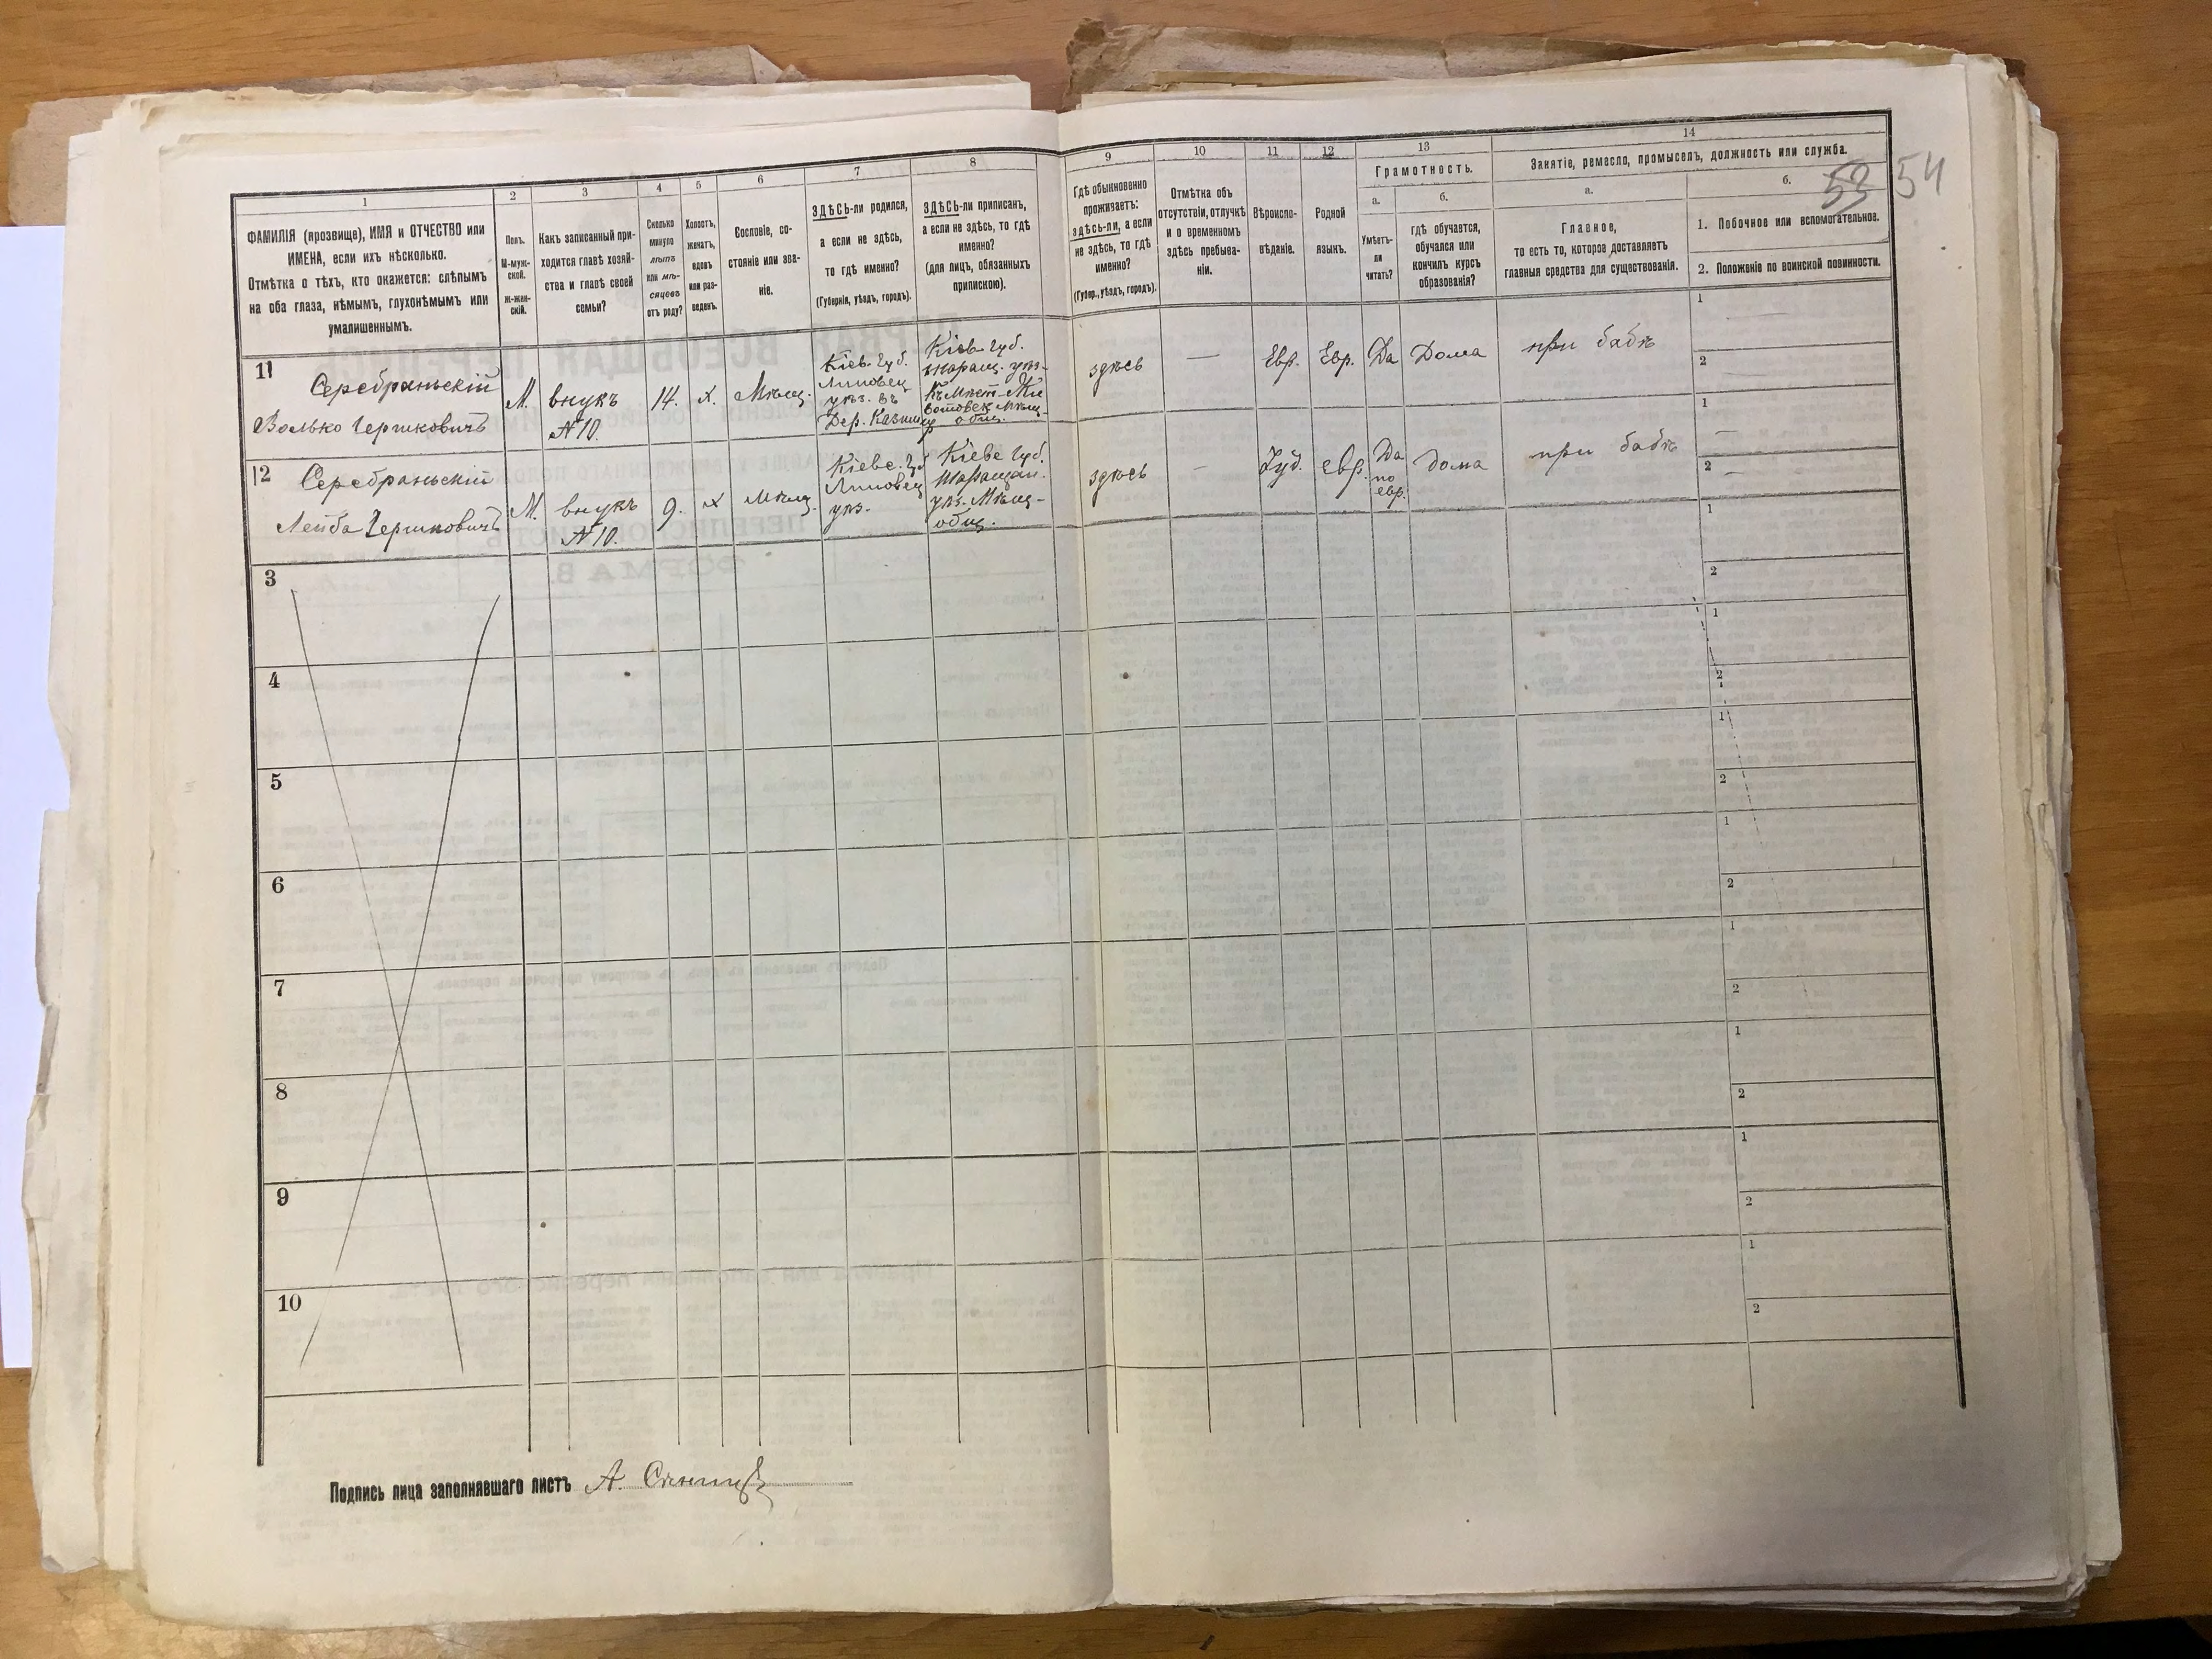 53 54
1
2
3
4
5
6
7
8
9
10
11
12
13
14
ФАМИЛІЯ (прозвище), ИМЯ и ОТЧЕСТВО или
ИМЕНА, если ихъ нѣсколько.
Отмѣтка о тѣхъ, кто окажется: слѣпымъ
на оба глаза, нѣмымъ, глухонѣмымъ или
умалишеннымъ.
Полъ.
М-муж-
ской.
Ж-жен-
скій.
Какъ записанный при-
ходится главѣ хозяй-
ства и главѣ своей
семьи?
Сколько
минуло
лѣтъ
или мѣ-
сяцовъ
отъ роду?
Холостъ,
женатъ,
вдовъ
или раз-
веденъ.
Сословіе, со-
стояніе или зва-
ніе.
ЗДѢСЬ-ли родился,
а если не здѣсь,
то гдѣ именно?
(Губернія, уѣздъ, городъ).
ЗДѢСЬ-ли приписанъ,
а если не здѣсь, то гдѣ
именно?
(для лицъ, обязанныхъ
припискою).
Гдѣ обыкновенно
проживаетъ:
здѣсь-ли, а если
не здѣсь, то гдѣ
именно?
(Губер., уѣздъ, городъ).
Отмѣтка объ
отсутствіи, отлучкѣ
и о временномъ
здѣсь пребыва-
ніи.
Вѣроиспо-
вѣданіе.
Родной
языкъ.
Грамотность.
а.
Умѣетъ-
ли
читать?
б.
гдѣ обучается,
обучался или
кончилъ курсъ
образованія?
Занятіе, ремесло, промыселъ, должность или служба.
а.
Главное,
то есть то, которое доставляетъ
главныя средства для существованія.
б.
1. Побочное или вспомогательное.
2. Положеніе по воинской повинности.
11
Серебраньскій
Волько Гершковичъ
М.
внукъ
№ 10.
14.
х.
Мѣщ.
Кіев. губ.
Липовец
уѣз. въ
Дер.
Кіев. губ.
уѣз.
Мѣщ.
общ.
здѣсь
—
Евр.
Евр.
Да
Дома
при бабѣ
1
2
12
Серебраньскій
Лейба Гершковичъ
М.
внукъ
№ 10.
9.
х
Мѣщ.
Кіевс. губ
Липовец
уѣз.
Кіевс губ.
Таращан.
уѣз. Мѣщ-
общ.
здѣсь
—
Іуд.
евр.
Да
по
евр.
дома
при бабѣ
1
2
3
1
2
4
1
2
5
1
2
6
1
2
7
1
2
8
1
2
9
1
2
10
1
2
Подпись лица заполнявшаго листъ А.